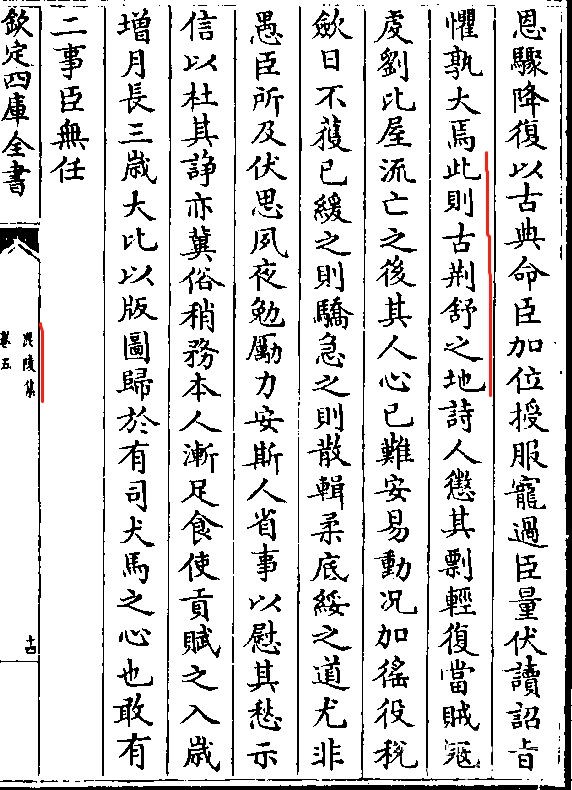 恩驟降復以古典命臣加位授服寵過臣量伏讀詔旨
懼孰大焉此則古荆舒之地詩人懲其剽輕復當賊冦
虔劉比屋流亡之後其人心已難安易動况加徭役税
斂日不䕶已緩之則驕急之則散輯柔底綏之道尤非
愚臣所及伏思夙夜勉勵力安斯人省事以慰其愁示
信以杜其諍亦冀俗稍務本人漸足食使貢賦之入歳
增月長三歳大比以版圖歸於有司犬馬之心也敢有
二事臣無任
欽定四庫全書
毘陵集
卷五
古